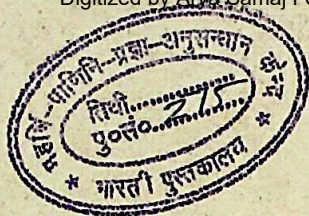 Digitized by Arya Samaj Fo
महर्षि-पाणिनि-प्रज्ञा-अनुसन्धान केन्द्र
तिथी..............
पु०सं०...215...
* भारती पुस्तकालय *